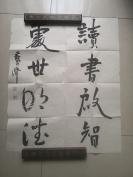 讀書啟智
處世明德